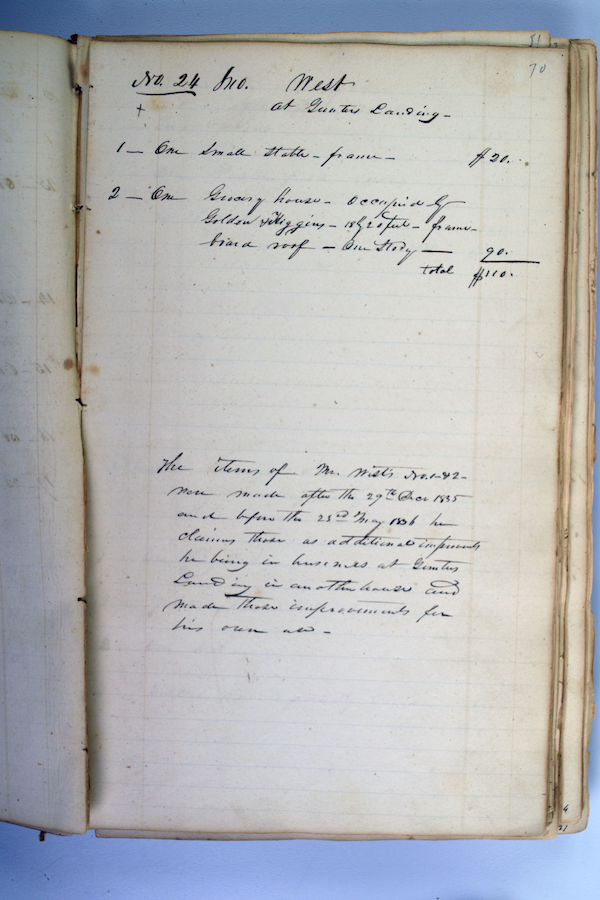 70
No. 24 Jno. West
+ at Gunters Landing -
1 - One Small stable - frame - $20.
2 - One Grocery house - occupied by
Golden & Higgins - 18 by 20 feet - frame -
board roof - One Story - 90.
total $110.
The items of Mr. West's No. 1 & 2 -
were made after the 29th Dec 1835
and before the 23rd May 1836 he
claims those as additional improvmts
he being in business at Gunters
Landing in another house and
made those improvements for
his own use -